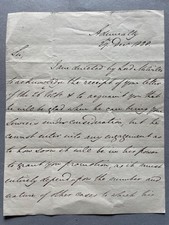 Admiralty
29 Dec 1830
Sir
I am directed by Lord
to acknowledge the receipt of your letter
of the 26 and to acquaint you that
he will be glad when he can bring your
Services under consideration, but he
cannot enter into any engagement as
to how soon it will be in his power
to grant you promotion, as it must
entirely depend upon the number and
nature of other cases to which his